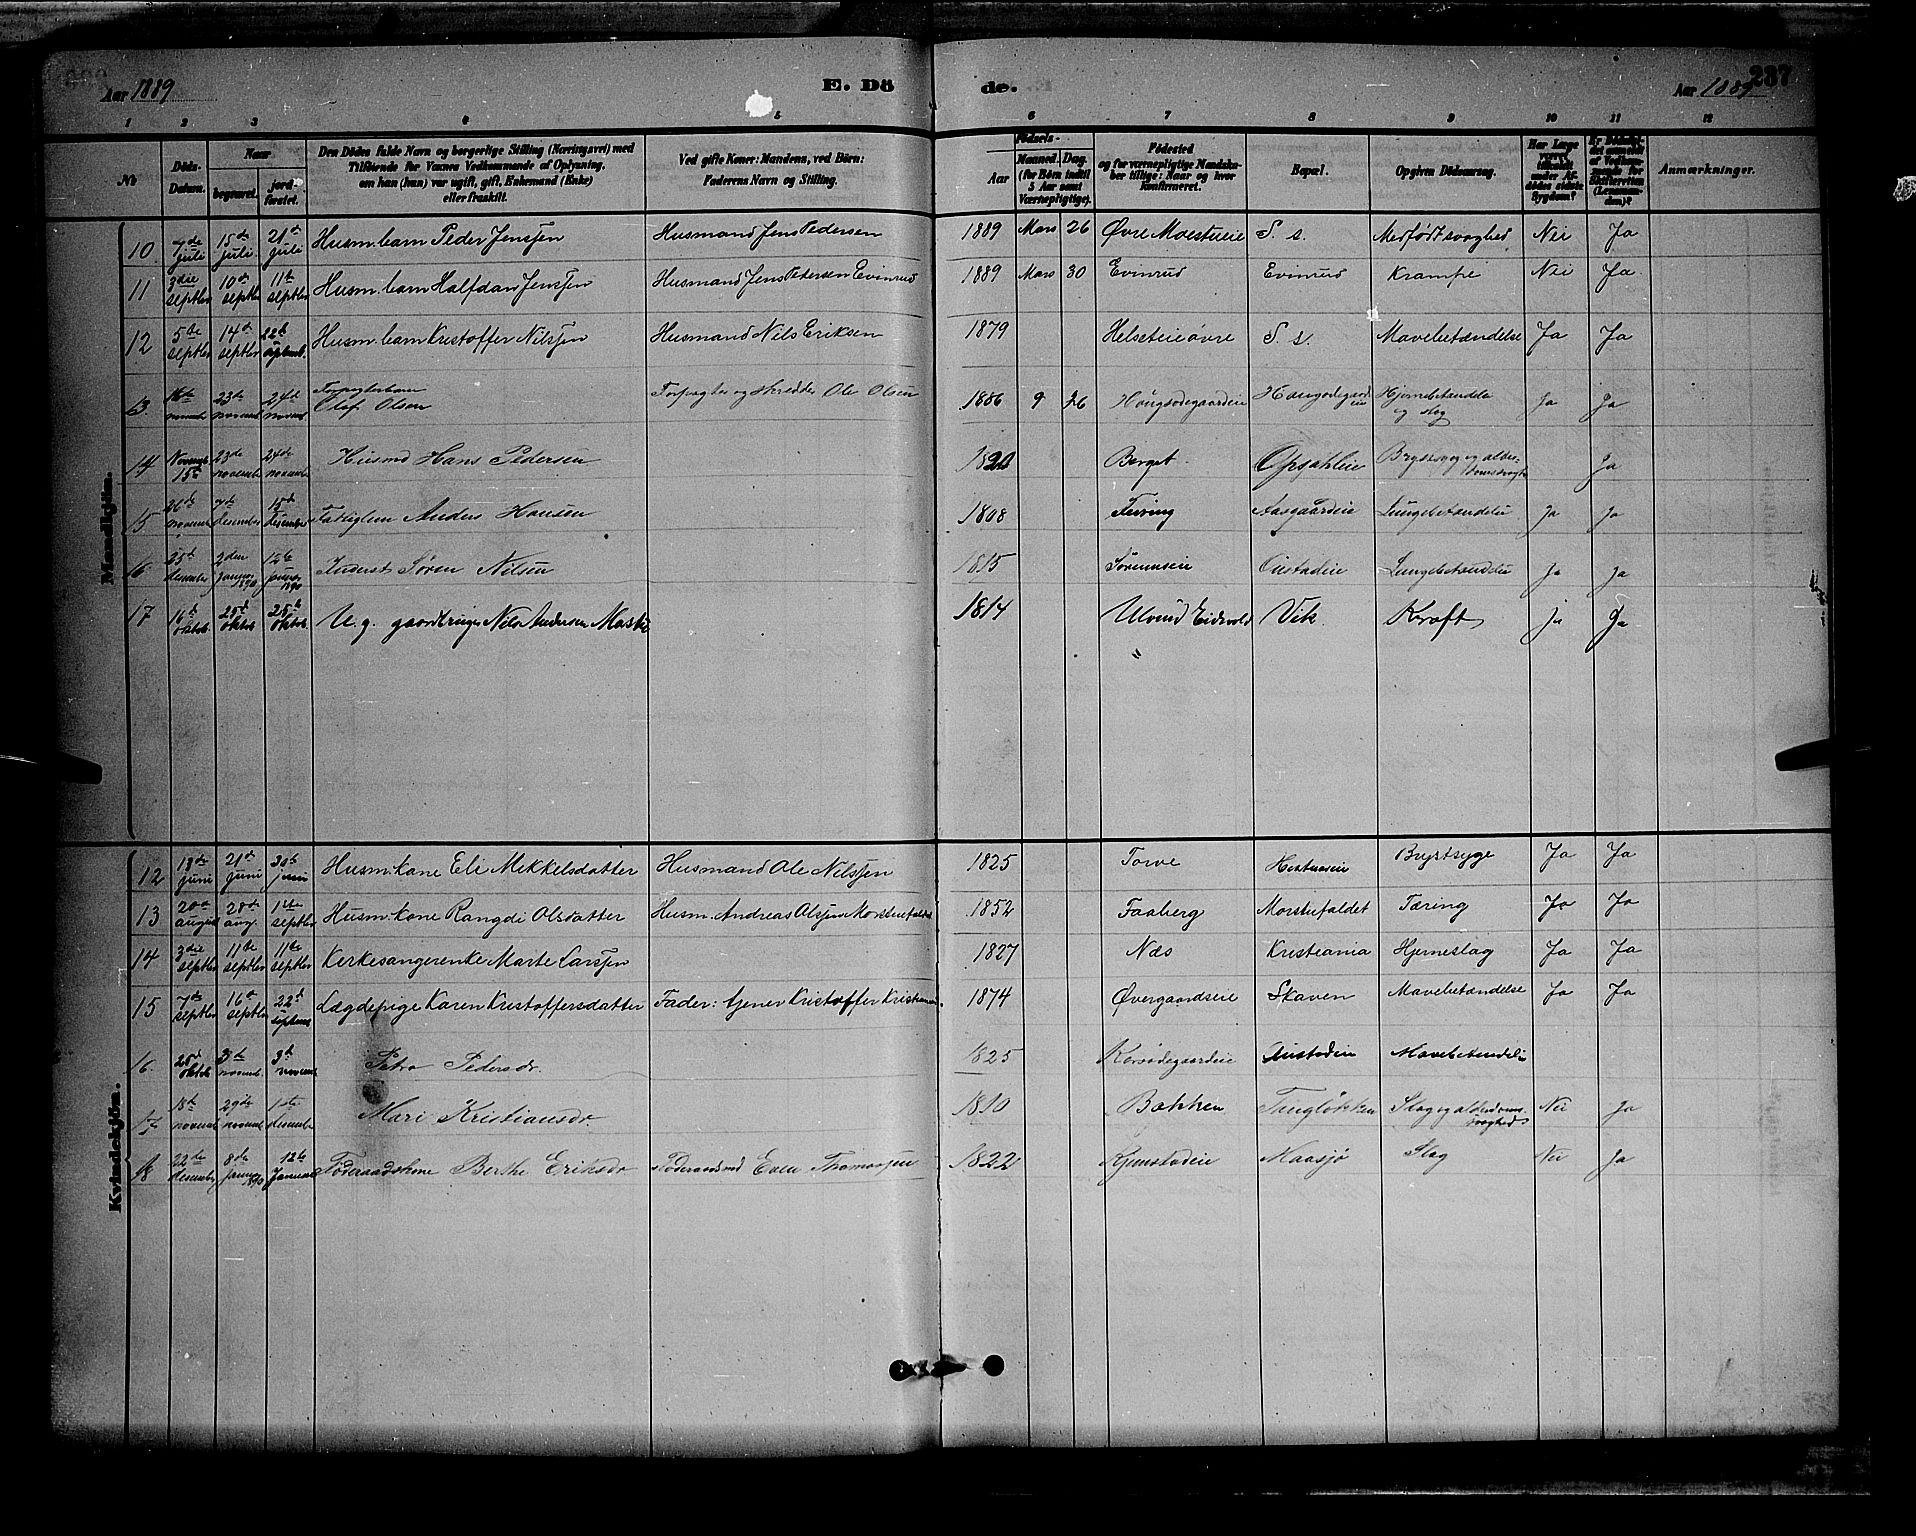 Aar 1889 E. Dö de. Aar 1889 237
1 2 3 4 5 6 7 8 9 10 11 12
No Döds-Datum. Naar begravet. jordfæstet. Den Dödes fulde Navn og borgerlige Stilling (Næringsvei) med Tilföiende for Voxnes Vedkommende af Oplysning, om han (hun) var ugift, gift, Enkemand (Enke) eller fraskilt. Ved gifte Koner: Mandens, ved Börn: Faderens Navn og Stilling. Födsels- Aar Maaned. Dag. (for Börn indtil 5 Aar samt Værnepligtige). Födested og for værnepligtige Mandskaber tillige: Naar og hvor konfirmeret. Bopæl. Opgiven Dödsaarsag. Har Læge været tilkaldt under Afdödes sidste Sygdom? Er Dödsfaldet anmeldt af Vedkommende for Skifteretten (Lensmanden)? Anmærkninger.
Mandkjön.
10 7de juli 15de juli 21de juli Husm.barn Peder Jenssen Husmand Jens Pedersen 1889 Mars 26 Øvre Moestueie S. s. Medfødt svaghed Nei Ja
11 3die septbr 10de septbr 11te septbr Husm.barn Halfdan Jenssen Husmand Jens Petersen Evinrud 1889 Mars 30 Evinrud Evinrud Krampe Nei Ja
12 5te septbr 14de septbr 22de septemb. Husm.barn Kristoffer Nilssen Husmand Nils Eriksen 1879 Helseteie øvre S. s. Mavebetændelse Ja Ja
13. 16de novemb 23de novemb 24de novemb Forpagterbarn Olaf Olsen Forpagter og skrædder Ole Olsen 1886 9 26 Haugsodegaardeie Haugsodegaardeie Hjernebetændelse og slag Ja Ja
14 Novemb 15de 23de novemb 24de novemb Husmd Hans Pedersen 1820 Berget. Opsahleie Brystsyge og alderdomssvaghed Ja
15 26de novemb 7de desember 15de desember Fattiglem Anders Hansen 1808 Feiring Aasgaardeie Lungebetændelse Ja Ja
16 25de desember 2den januar 1890 12te januar 1890 Inderst Søren Nilsen 1815 Lungebetændelse Ja Ja
17 16de oktob. 25de oktob 25de oktob. U.g. gaardbruger Nils Andersen 1814 Eidsvold Vik. Kræft ja Ja
"
Kvindekjön.
12 13de juni 21de juni 30te juni Husm:kone Eli Mikkelsdatter Husmand Ole Nilssen 1825 Torve Brystsyge Ja Ja
13 20de august 28de aug. 1ste septbr Husm:kone Rangdi Olsdatter Husm. Andreas Olssen Morstuefaldet 1852 Faaberg Morstufaldet Tæring Ja Ja
14 3die septbr 11te septbr 11te septbr Kerkesangerenke Marte Larssen 1827 Næs Kristiania Hjerneslag Ja Ja
15 7de septbr 16de septbr 22de septemb Lægdepige Karen Kristoffersdatter Fader: tjener Kristoffer Kristiansen. 1874 Øvergaardseie Skaven Mavebetændelse Ja Ja
16. 25de oktob 3de novemb. 3de novemb Petra Pedersdr. 1825 Mavebetændelse
17 18de novemb 29de novemb 1ste desember Mari Kristiansdr 1810 Bækken Tingløkken Slag og alderdomssvaghed Nei Ja
18 22de desember 8de januar 1890 12te Januar Føderaadskone Berthe Eriksdr Føderaadsmd Even Thomassen 1822 Kjemstadeie Maasjø Slag Nei Ja